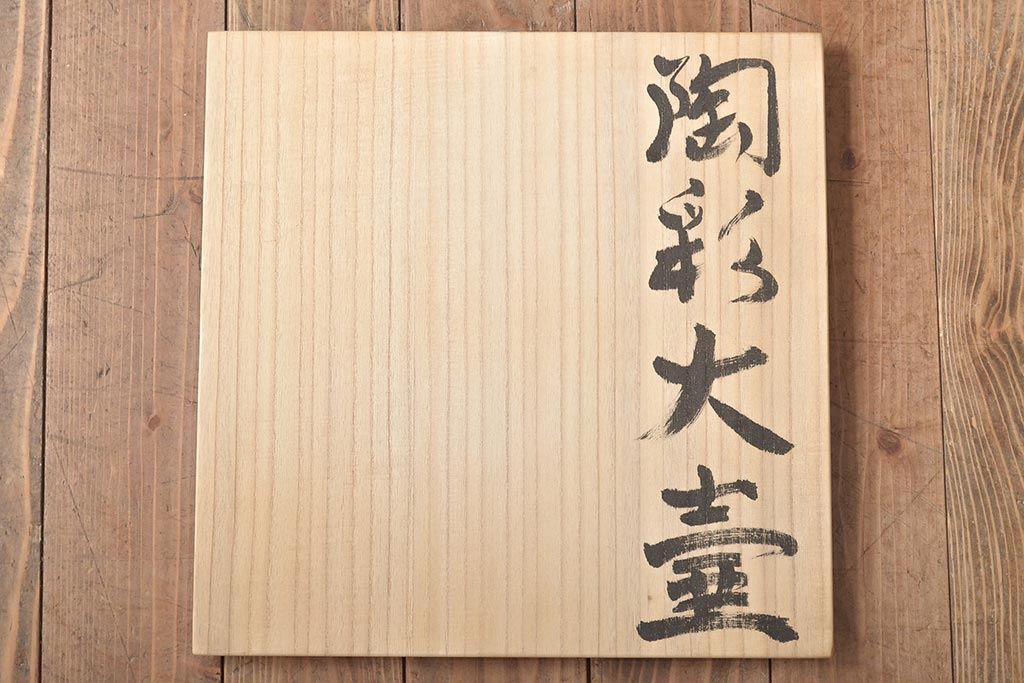 陶彩大壷